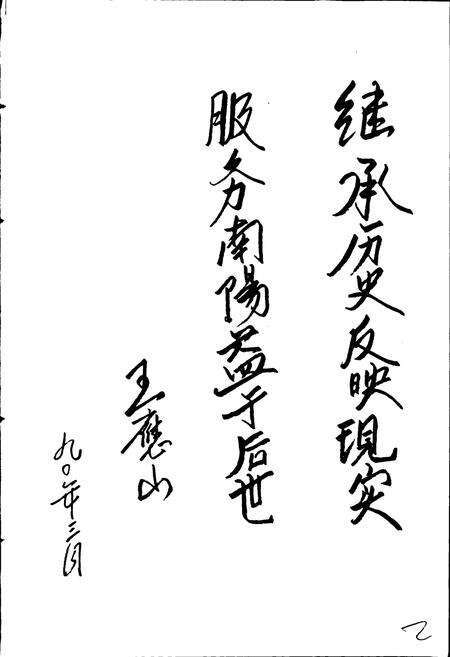 继承历史反映現实
服务南陽益于后世
王應山
九〇年三月